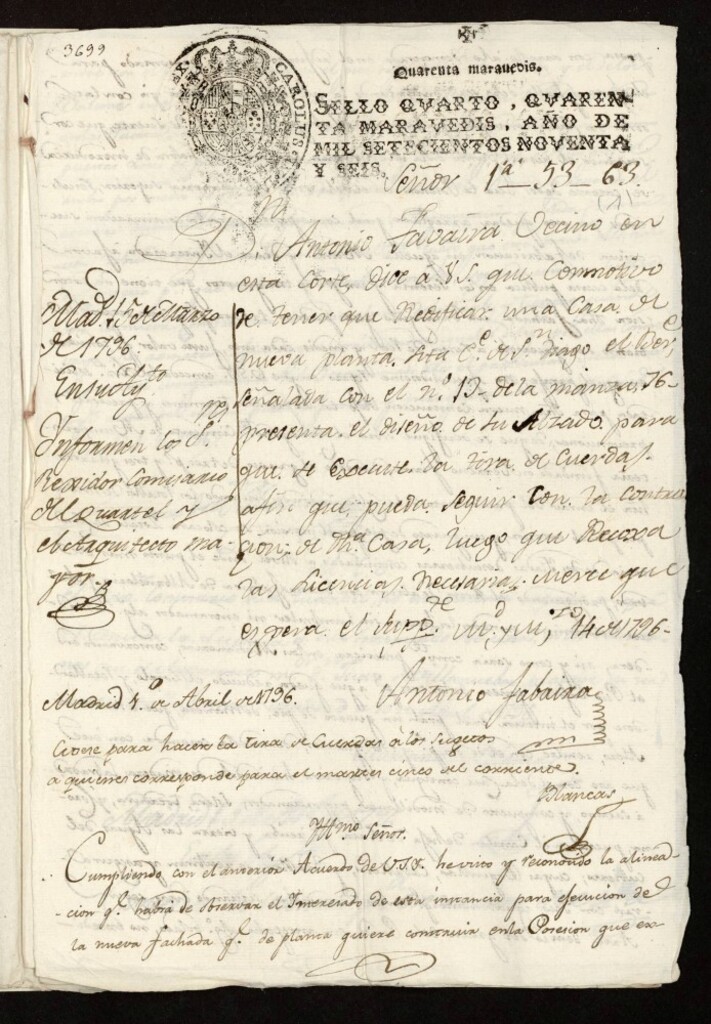 3699
CAROLUS
Quarenta maravedis.
SELLO QVARTO, QVAREN-
TA MARAVEDIS, AÑO DE
MIL SETECIENTOS NOVENTA
Y SEIS.
Señor 1ª-53-63
(1)
D. Antonio Fabaira Vecino en
esta Corte, dice à VS. que Con motivo
de tener que Redificar una Casa de
nueva planta, sita C.e de S.n Tiago el Ber.e
señalada con el n.o 13 de la manzª 76-
presenta el diseño de su Alzado para
que se execute la tira de Cuerdas
afin que pueda seguir con la contruc
cion de dha Casa, luego que Recoxa
las Licencias Necesarias. merced que
espera el Supp.te M.d y M.zo 14 de 1796-
Antonio Fabaira
Mad. 15 de Marzo
de 1796
En su Ay.to
Informen los S.res
Rexidor Comisario
del Quartel y
el Arquitecto ma-
yor.
Madrid 1.o de Abril de 1796.
Citese para hacer la tira de Cuerdas à los sugetos
à quienes corresponde para el martes cinco del corriente.
Blancas
Illmo Señor.
Cumpliendo con el anterior Acuerdo de VSY. he visto y reconocido la alinea-
cion q.e habrá de observar el Interesado de esta instancia para ejecucion de
la nueva fachada q.e de planta quiere construir en la Posesion que ex-